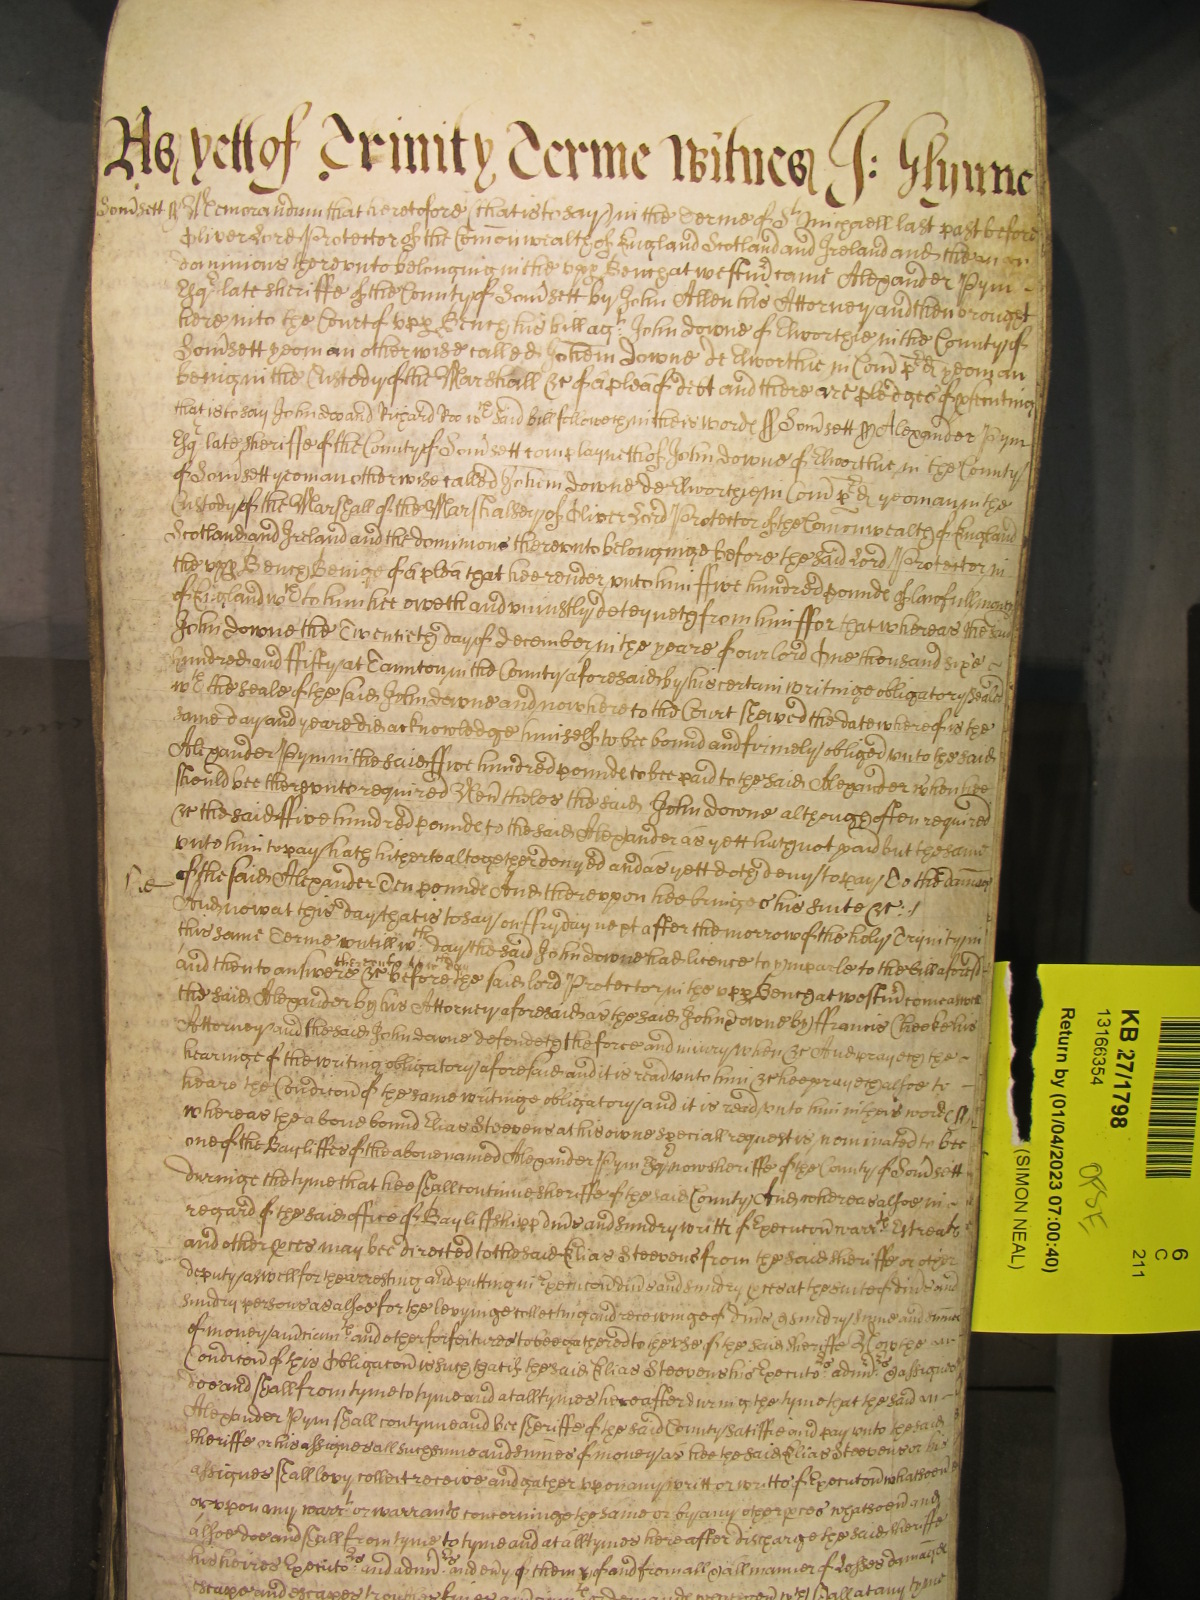 As yett of Trinity Terme Witnes J: Glynne
Somsett ss Memorandum that heretofore (that is to say) in the Terme of St Michaell last past before
Oliver Lord Protector of the Comonwealth of England Scotland and Ireland and the
dominions thereunto belonging in the upp Bench at westm came Alexander Pym
Esqr late Sheriffe of the County of Somsett by John Allen his Attorney and then brought
here into the Court of upp Bench his bill agt John Downe of Elworthie in the County of
Somsett yeoman otherwise called Johem Downe de Elworthie in Com pred yeoman
being in the Custody of the Marshall &c of a plea of debt and there are pledges of psecuting
that is to say John Doo and Richard Roo wch said bill followeth in theis words ss Somsett ss Alexander Pym
Esqr late Sheriffe of the County of Somsett complayneth of John Downe of Elworthie in the County
of Somsett yeoman otherwise called Johem Downe de Elworthie in Com pred yeoman in the
Custody of the Marshall of the Marshalsey of Oliver Lord Protector of the Comonwealth of England
Scotland and Ireland and the dominions thereunto belonginge before the said Lord Protector in
the upp Bench Beinge of a plea that hee render unto him ffive hundred pounds of lawfull money
of England wch to him hee oweth and uniustly deteyneth from him ffor that whereas the said
John Downe the Twentieth day of December in the yeare of our Lord One thousand sixe
hundred and ffifty at Taunton in the County aforesaid by his certain writinge obligatory sealed
wth the seale of the said John Downe and now here to the Court shewed the date whereof is the
same day and yeare did acknowledge himself to bee bound and firmely obliged unto the said
Alexander Pym in the said ffive hundred pounds to bee paid to the said Alexander when hee
should bee thereunto required Nevtheles the said John Downe although often required
&c the said ffive hundred pounds to the said Alexander as yett hath not paid but the same
unto him to pay hath hitherto altogether denyed and as yett doth deny to pay To the damage
of the said Alexander Ten pounds And thereupon hee bringes his suite &c
And now at this day that is to say on ffryday next after the morrow of the holy Trynity in
this same Terme untill wch day the said John Downe had licence to ymparle to the bill aforesd
and then to answere &c before the said lord Protector in the upp Bench at westm come aswell
the said Alexander by his Attorney aforesaid as the said John Downe by ffrancis Cheeke his
Attorney and the said John Downe defendeth the force and iniury when &c And prayeth the
hearinge of the writing obligatory aforesaid and it is read unto him &c hee prayeth alsoe to
heare the Condicon of the same writinge obligatory and it is read unto him in theis words ss
whereas the above bound Elias Steevens at his owne speciall request is nominated to bee
one of the Bayliffes of the above named Alexander Pym Esqr now sheriffe of the County of Somsett
duringe the tyme that hee shall continue sheriffe of the said County And whereas alsoe in
regard of the said office of Bayliffshipp divs and sundry writts of Execucon warrts Estreats
and other pces may bee directed to the said Elias Steevens from the said sheriffe or other
deputy aswell for the arresting and putting in execucon divs and sundry pces at the suite of divs and
sundry persons as alsoe for the levyinge collecting and receiving of divs & sundry sume and sumes
of money and other forfeitures to bee gathered to the use of the said sheriffe Now the
Condicon of this Obligacon is such that if the said Elias Steevens his Executors adminrs & assignes
doe and shall from tyme to tyme and at all tymes hereafter during the tyme that the said
Alexander Pym shall contynue and bee sheriffe of the said County satisfie and pay unto the said
sheriffe or his assignes all such sume and sumes of money as hee the said Elias Steevens or his
assignes shall levy collect receive and gather upon any writt or writts of Execucon whatsoevr
or upon any warrt or warrants concerninge the same or by any other pces whatsoevr and
alsoe doe and shall from tyme to tyme and at all tymes hereafter discharge the said sheriffe
his heires Executors and adminrs and evy of them of and from all & all manner of Losses damages
escape and escapes troubles fines and demands whatsoevr wch shall at any tyme
KB 27/1798
13166354
Return by (01/04/2023 07:00:40)
(SIMON NEAL)
6
C
211